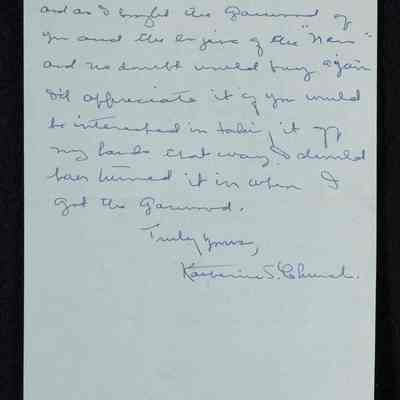 and as I bought the Garwood of
you and the engine of the "Nais"
and no doubt would buy again
I'd appreciate it if you would
be interested in taking it off
my hands that way. I should
have turned it in when I
got the Garwood.
Truly yours,
Katherine S. Church.